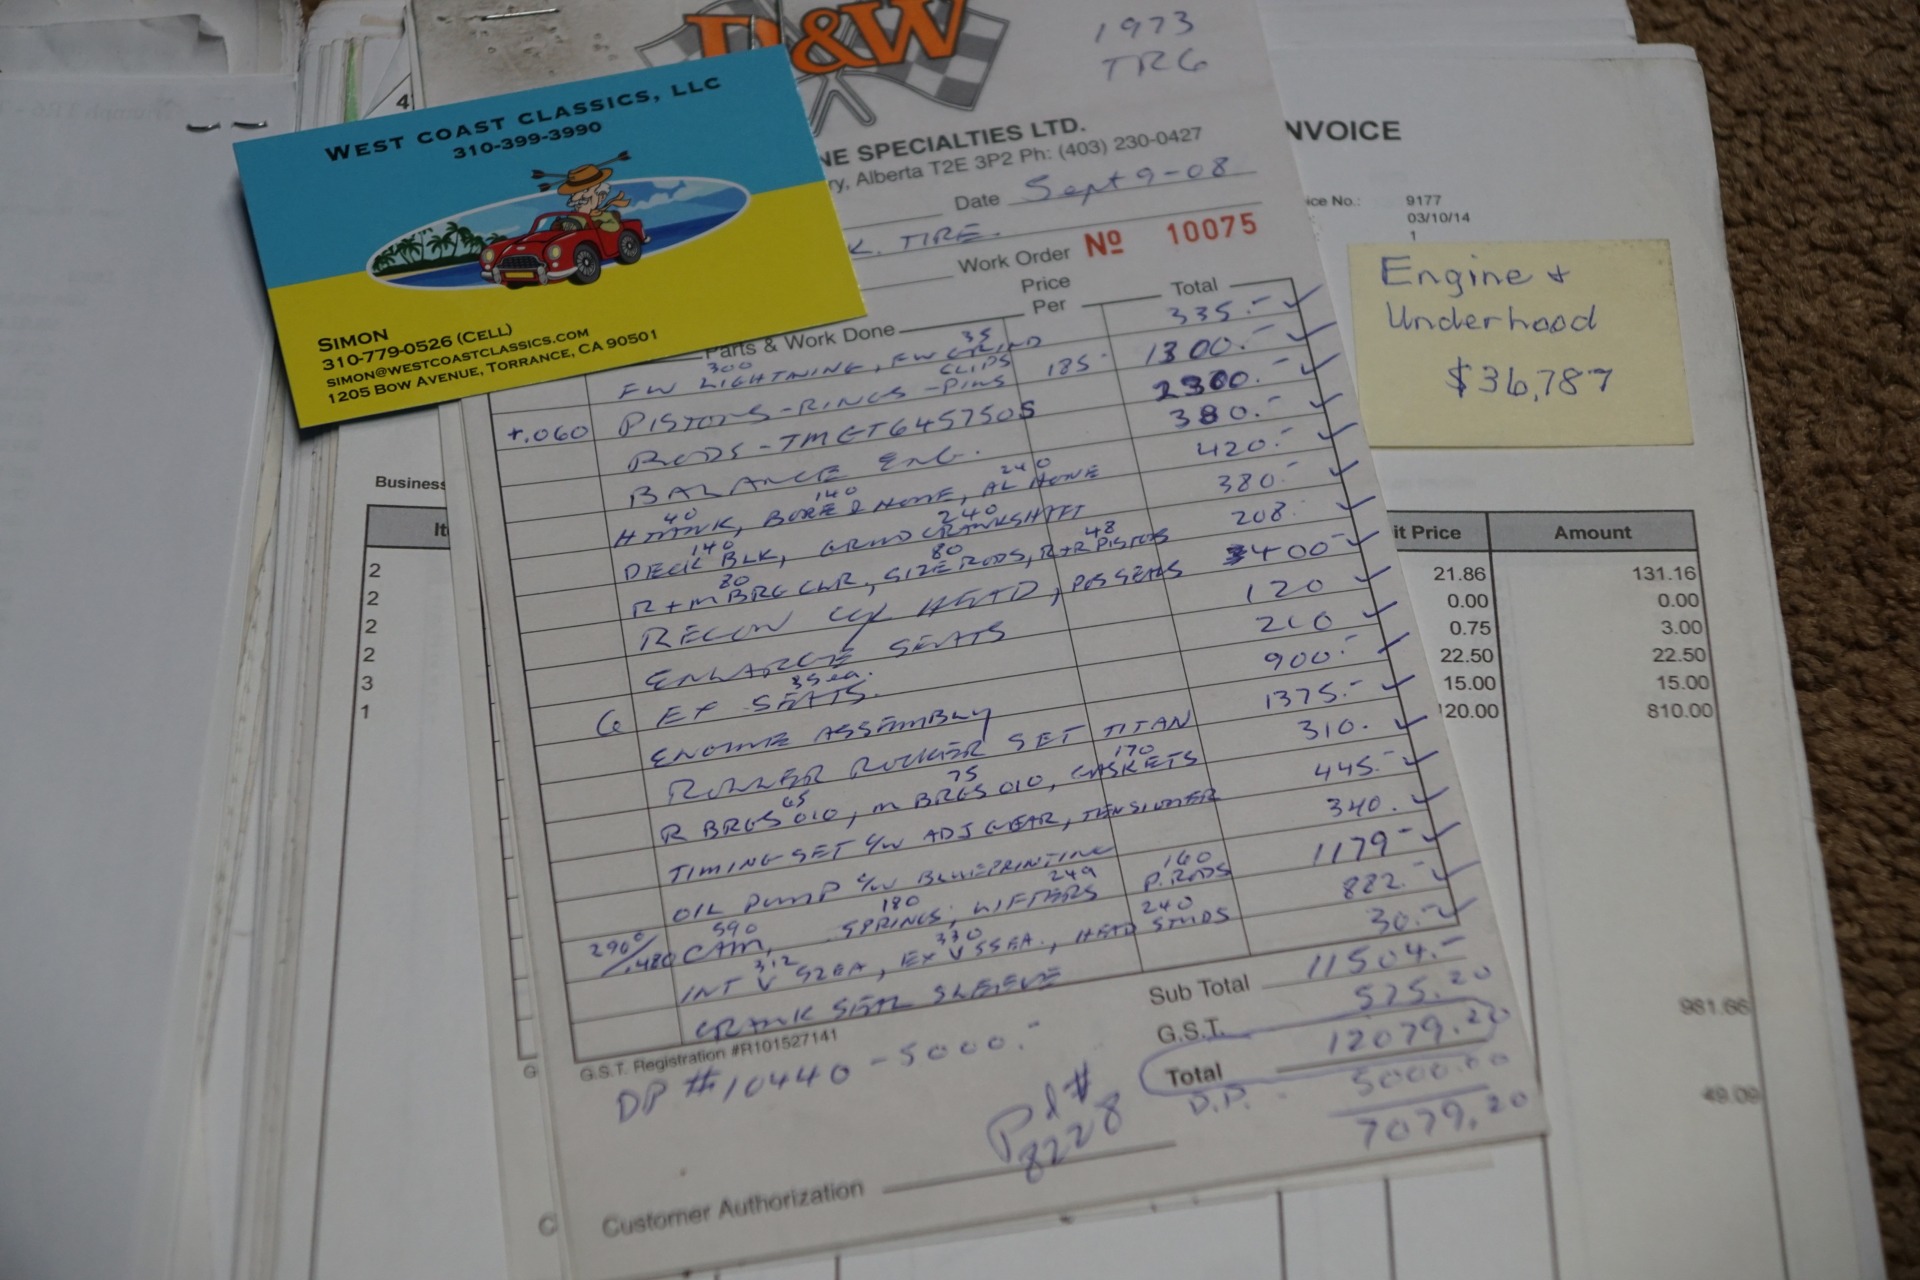 D&W
1973
TR6
NE SPECIALTIES LTD.
ry, Alberta T2E 3P2 Ph: (403) 230-0427
Date Sept 9-08
K. TIRE.
Work Order No 10075
Parts & Work Done Price Per Total
300 35
FW LIGHTNING, FW GRIND 335.-
CLIPS
+.060 PISTONS-RINGS-PINS 185- 1300.-
RODS-TMGT645750S 2300.-
BALANCE ENG. 380.-
40 140 240
H TANK, BORE & HONE, AL HONE 420.-
140 240
DECK BLK, GRIND CRANKSHAFT 380.-
80 80 48
R+M BRG CLR, SIZE RODS, R+R PISTONS 208.
RECON CYL HEAD, POS SEALS 400-
ENLARGE SEATS 120
35ea.
6 EX SEATS. 210
ENGINE ASSEMBLY 900.-
ROLLER ROCKER SET TITAN 1375.-
65 75 170
R BRGS 010, M BRGS 010, GASKETS 310.
TIMING SET C/W ADJ GEAR, TENSIONER 445.-
OIL PUMP C/W BLUEPRINTING 340.
590 180 249 160
290°/.480 CAM, SPRINGS, LIFTERS P. RODS 1179-
312 330 240
INT V 52EA, EX V 55EA., HEAD STUDS 882.-
CRANK SEAL SLEEVE 30.-
Sub Total 11504.-
G.S.T. 575.20
Total 12079.20
D.P. 5000.00
7079.20
G.S.T. Registration #R101527141
DP #10440-5000.-
Pd #
8228
Customer Authorization
WEST COAST CLASSICS, LLC
310-399-3990
SIMON
310-779-0526 (CELL)
SIMON@WESTCOASTCLASSICS.COM
1205 BOW AVENUE, TORRANCE, CA 90501
4
NVOICE
ice No.: 9177
03/10/14
1
Engine +
Underhood
$36,787
Business
It
it Price Amount
2 21.86 131.16
2 0.00 0.00
2 0.75 3.00
2 22.50 22.50
3 15.00 15.00
1 120.00 810.00
981.66
49.09
G
C